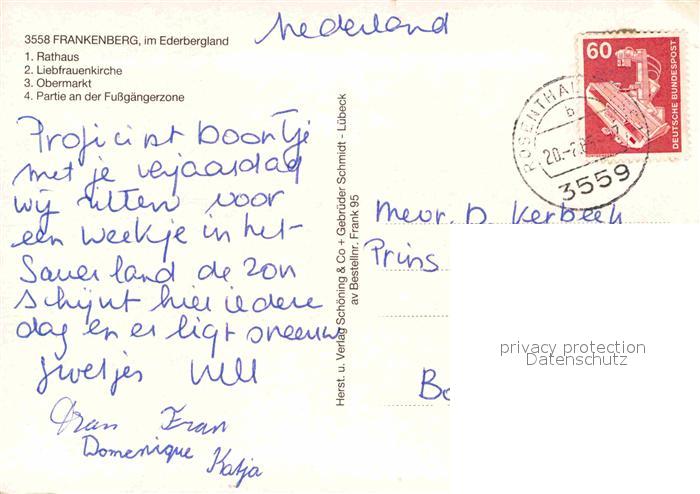 Nederland
3558 FRANKENBERG, im Ederbergland
1. Rathaus
2. Liebfrauenkirche
3. Obermarkt
4. Partie an der Fußgängerzone
60
DEUTSCHE BUNDESPOST
ROSENTHAL
3559
Proficist boortje
met je verjaardag
wij zitten voor
een weekje in het
Sauerland de zon
schijnt hier iedere
dag en er ligt sneeuw
Groetjes
Fran
Domenique
Katja
Herst. u. Verlag Schöning & Co + Gebrüder Schmidt - Lübeck
av Bestellnr. Frank 95
Mevr. D. Kerbeek
Prins
privacy protection
Datenschutz